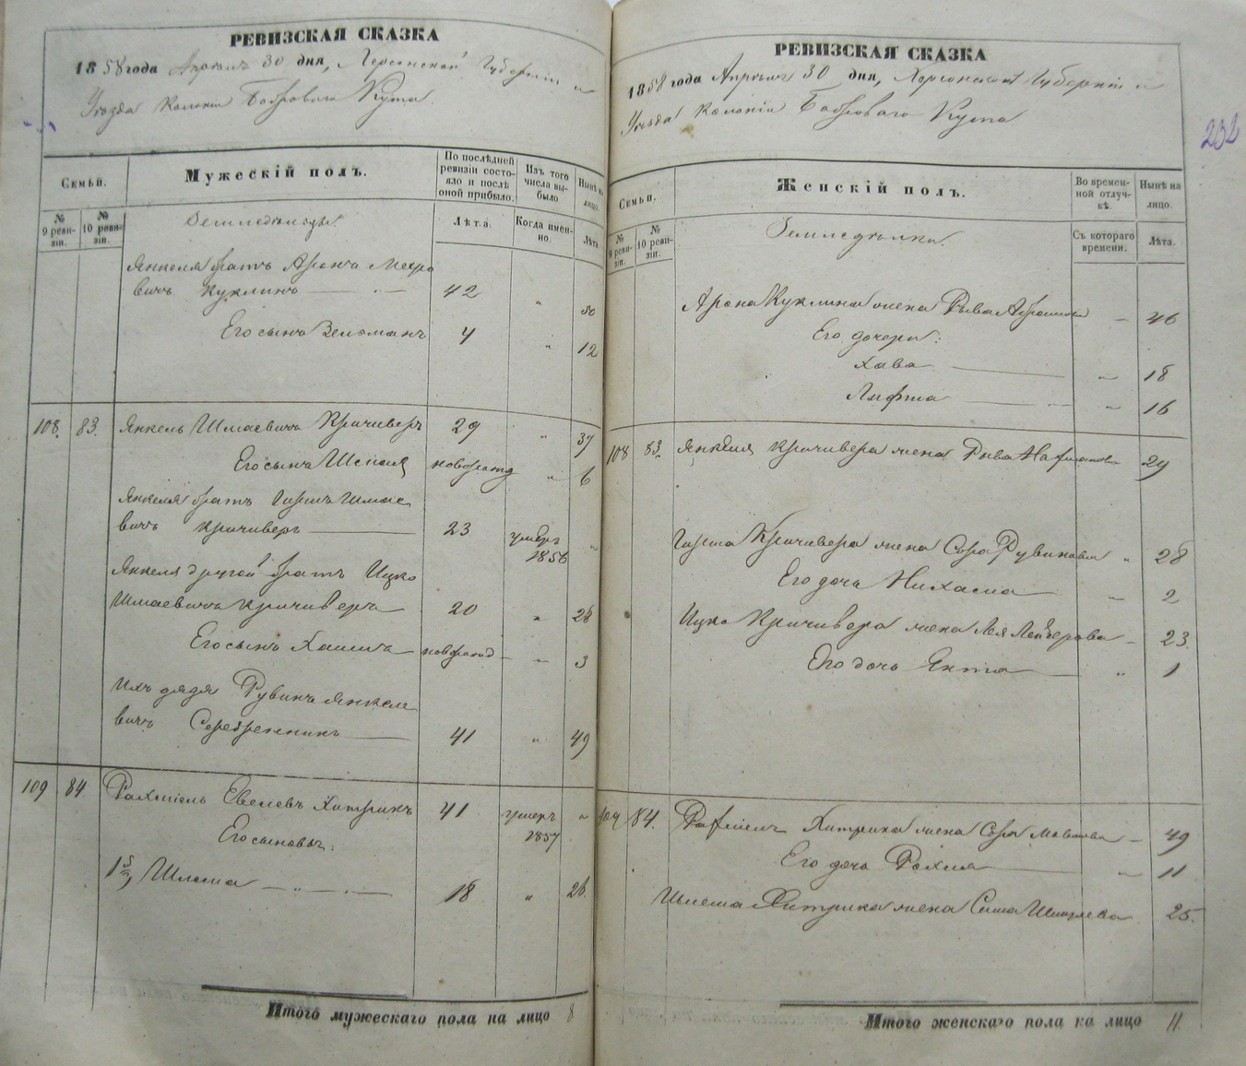 РЕВИЗСКАЯ СКАЗКА
1858 года Апреля 30 дня, Херсонской Губернии и
Уезда Колонии Боброваго Кута.
Семьи.
Мужескій полъ.
По послѣдней ревизіи состояло и послѣ оной прибыло.
Изъ того числа выбыло
Нынѣ на лицо.
№ 9 ревизіи.
№ 10 ревизіи.
Земледельцы.
Лѣта.
Когда именно.
Лѣта
Янкеля братъ Арона
вичъ Куклинъ 42 " 50
Его сынъ Зельманъ 4 " 12
108. 83. Янкель Шмаевичъ Кричиверъ 29 " 37
Его сынъ новорожд " 6
Янкеля братъ Гиршъ Шмае
вичъ Кричиверъ 23 умеръ 1856 "
Янкеля другой братъ Ицко
Шмаевичъ Кричиверъ 20 " 28
Его сынъ новорожд " 3
Ихъ дядя Рувинъ Янкеле
вичъ Серебренникъ 41 " 49
109 84 Рахміель Евелевъ Хитрикъ 41 умеръ 1857 "
Его сыновья:
1й, Шлема 18 " 26.
Итого мужескаго пола на лицо 8
РЕВИЗСКАЯ СКАЗКА
1858 года Апреля 30 дня, Херсонской Губерніи и
Уезда Колоніи Боброваго Кута
232
Семьи.
Женскій полъ.
Во временной отлучкѣ.
Нынѣ на лицо.
№ 9 ревизіи.
№ 10 ревизіи.
Земледелки.
Съ котораго времени.
Лѣта.
Арона Куклина жена Рыва 46
Его дочери:
Хава 18
16
108 83. Янкеля Кричивера жена Рива 29
Гирша Кричивера жена Сора Рувинова " 28
Его дочь Нихама 2
Ицка Кричивера жена Лея Лейзерова 23
Его дочь Ента " 1
109 84. Рахміеля Хитрика жена Сора 49
Его дочь Рахля 11
Шлема Хитрика жена 25.
Итого женскаго пола на лицо 11.